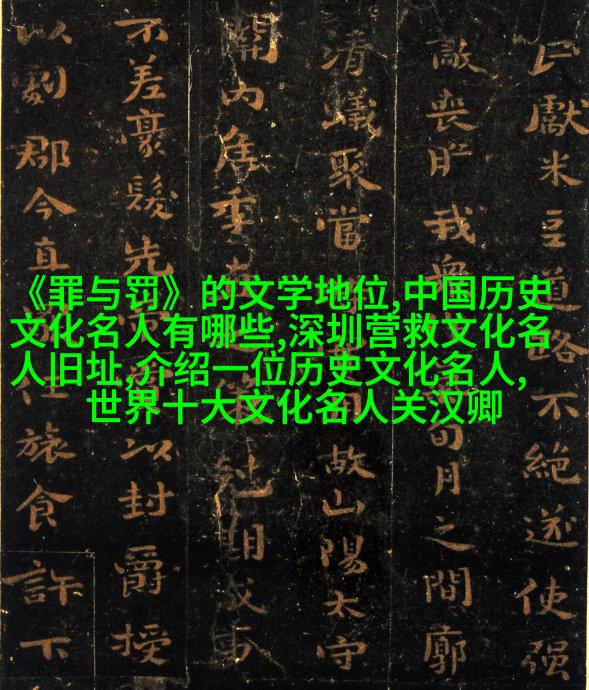 《罪与罚》的文学地位,中国历史
文化名人有哪些,深圳营救文化名
人旧址,介绍一位历史文化名人,
世界十大文化名人关汉卿
獻米豆道路不絕遂使强
敵喪膽我衆旬月之間廓
清蟻聚當故山陽太守
關内侯季直策剋期成事
不差豪髮先以封爵授
以劇郡今直任旅食許下